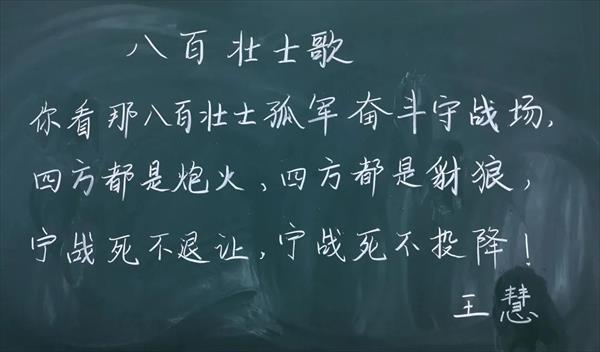 八百壮士歌
你看那八百壮士孤军奋斗守战场,
四方都是炮火、四方都是豺狼,
宁战死不退让,宁战死不投降!
王慧